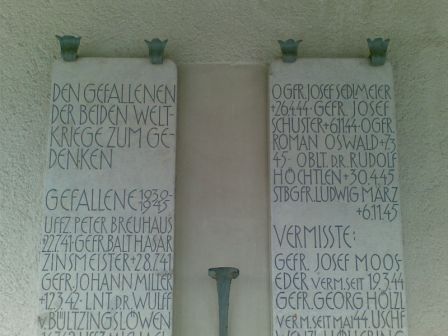 DEN GEFALLENEN
DER BEIDEN WELT-
KRIEGE ZUM GE-
DENKEN
GEFALLENE 1939-1945
UFFZ. PETER BREUHAUS
+22.7.41·GEFR.BALTHASAR
ZINSMEISTER+28.7.41
GEFR.JOHANN MILLER
+12.3.42·LNT.DR.WULFF
V.BÜLTZINGSLÖWEN
OGFR.JOSEF SEDLMEIER
+26.4.44·GEFR.JOSEF
SCHUSTER+6.11.44·OGFR.
ROMAN OSWALD+7.3.
45·OBLT.DR.RUDOLF
HÖCHTLEN+30.4.45
STBGFR.LUDWIG MARZ
+6.11.45
VERMISSTE:
GEFR. JOSEF MOOS-
EDER VERM.SEIT 19.3.44
GEFR.GEORG HÖLZL
VERM.SEIT MAI 44 USCHF.